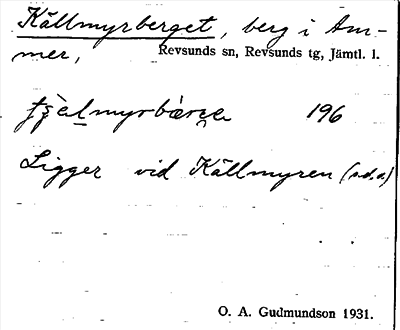 Källmyrberget, berg i Am-
mer, Revsunds sn, Revsunds tg, Jämtl. l.
196
Ligger vid Källmyren (s.d.o)
O. A. Gudmundson 1931.